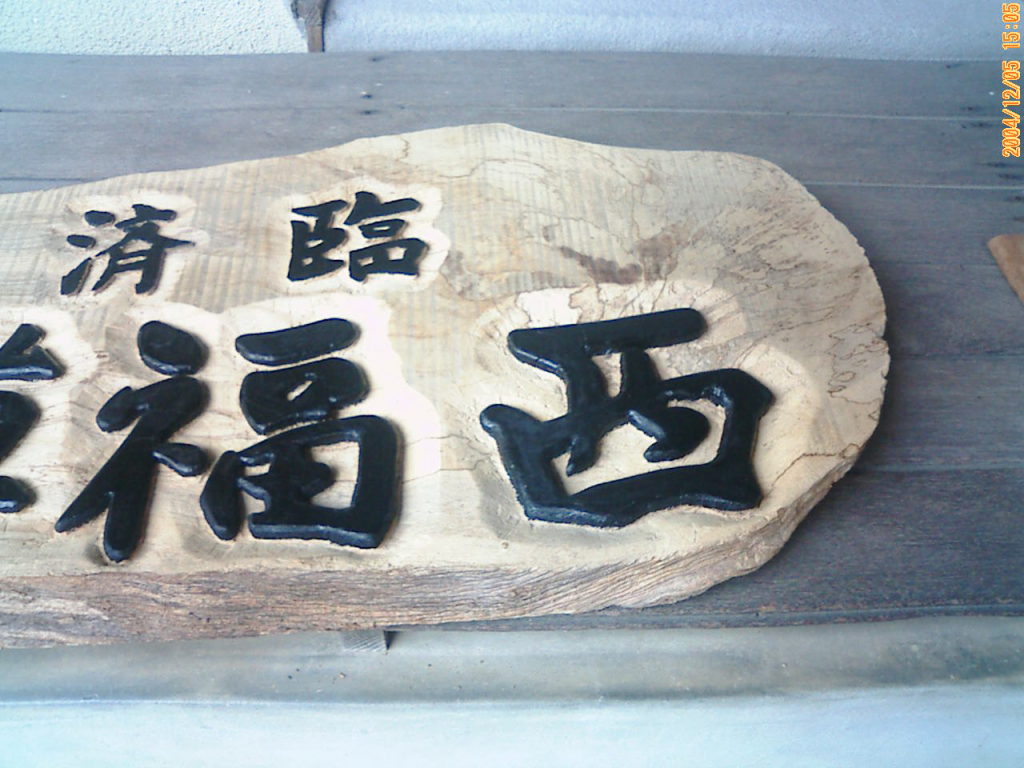 臨済
西福
2004/12/05 15:05